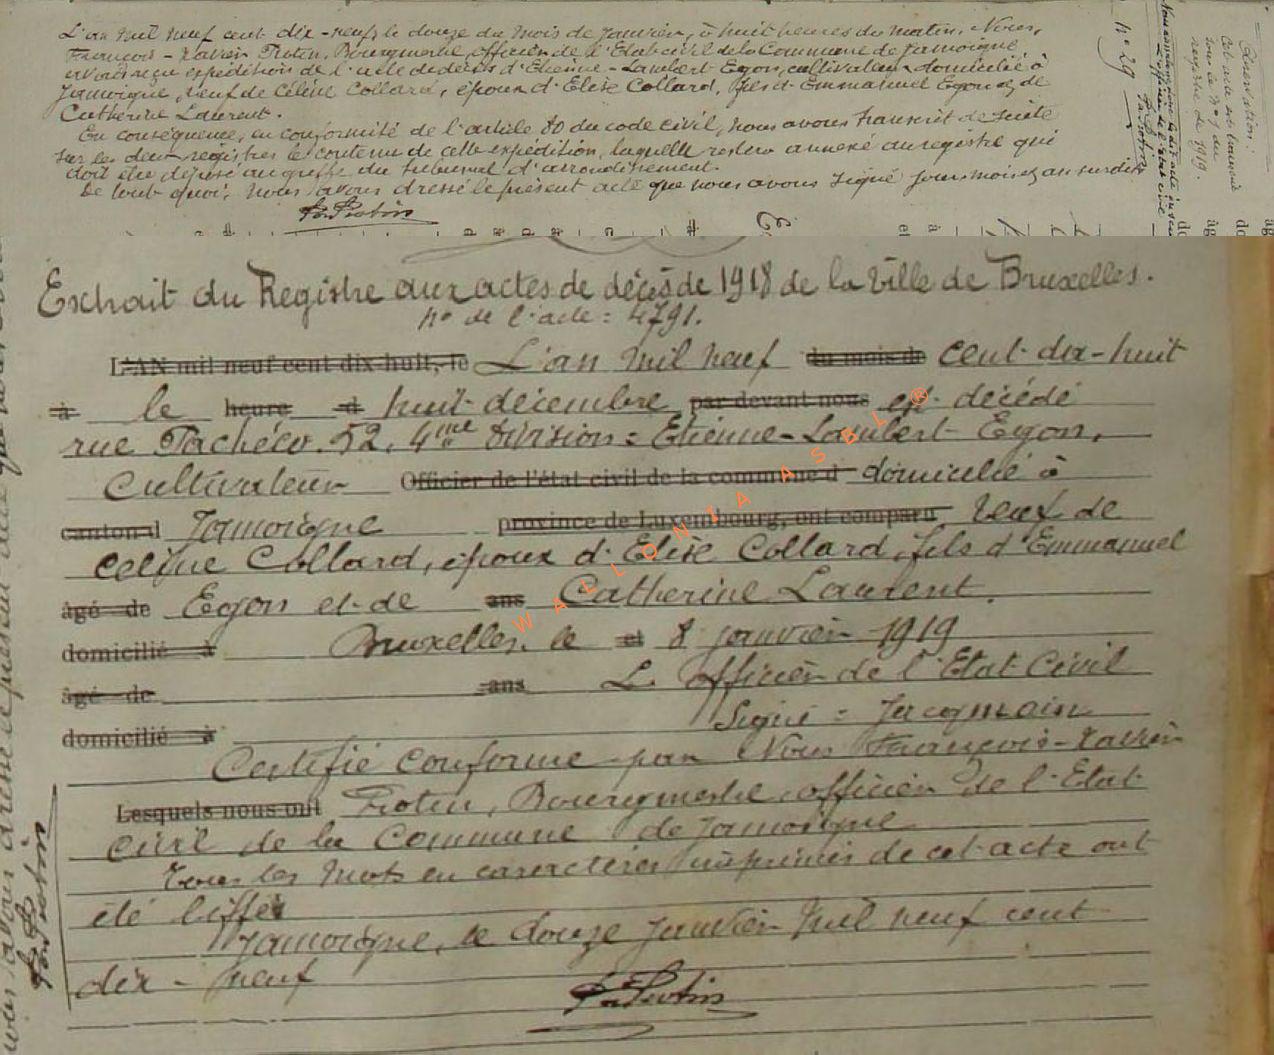 L'an mil neuf cent dix-neuf, le douze du mois de Janvier, à huit heures du matin, Nous,
François-Xavier Protin, Bourgmestre, officier de l'Etat civil de la Commune de Jamoigne,
avons reçu expédition de l'acte de décès d'Etienne-Lambert Egon, cultivateur domicilié à
Jamoigne, veuf de Céline Collard, époux d'Elise Collard, fils d'Emmanuel Egon et de
Catherine Laurent.
En conséquence, en conformité de l'article 80 du code civil, nous avons transcrit de suite
sur les deux registres le contenu de cette expédition, laquelle restera annexé au registre qui
doit être déposé au greffe du tribunal d'arrondissement.
De tout quoi, nous avons dressé le présent acte que nous avons signé jour mois et an susdits
Fx Protin
N° 29
Observation:
Cet acte est transcrit
sous le N° 1 du
registre de 1919
Fx Protin
Extrait du Registre aux actes de décès de 1918 de la Ville de Bruxelles.
N° de l'acte = 4791.
L'AN mil neuf cent dix-huit, le L'an mil neuf du mois de cent dix-huit
à le heure d huit décembre par devant nous est décédé
rue Pachéco. 52, 4me Division = Etienne-Lambert Egon,
Cultivateur Officier de l'état civil de la commune d domicilié à
canton d Jamoigne province de Luxembourg, ont comparu veuf de
Celine Collard, époux d'Elise Collard, fils d'Emmanuel
âgé de Egon et de ans Catherine Laurent.
domicilié à Bruxelles, le et 8 janvier 1919
âgé de ans L'officier de l'Etat Civil
domicilié à Signé = Jacqmain
Certifié conforme par Nous François-Xavier
Lesquels nous ont Protin, Bourgmestre, officier de l'Etat
civil de la Commune de Jamoigne
Tous les mots en caractères imprimés de cet acte ont
été biffés
Jamoigne, le douze Janvier mil neuf cent
dix-neuf
Fx Protin
Fx Protin
WALLONIA ASBL ®